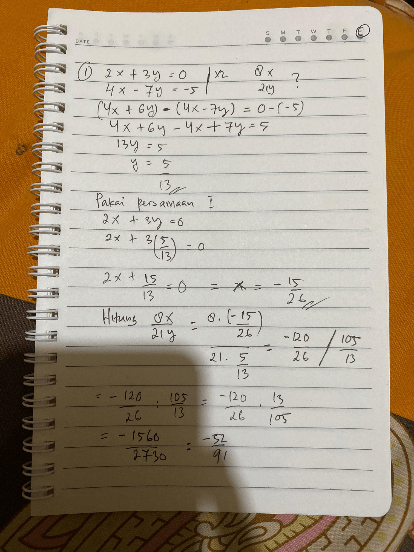 DATE S M T W T F S
① 2x + 3y = 0 | x2 8x/21y ?
4x - 7y = -5
(4x + 6y) - (4x - 7y) = 0 - (-5)
4x + 6y - 4x + 7y = 5
13y = 5
y = 5/13
Pakai persamaan I
2x + 3y = 0
2x + 3(5/13) = 0
2x + 15/13 = 0 = x = -15/26
Hitung 8x/21y = 8.(-15/26) / 21. 5/13 = -120/26 / 105/13
= -120/26 : 105/13 = -120/26 . 13/105
= -1560/2730 = -52/91